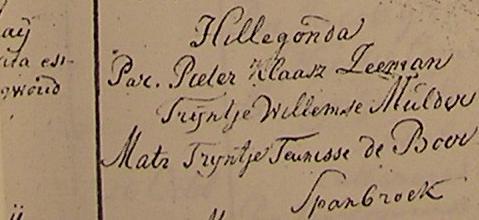 Hillegonda
Par. Pieter Klaasz Zeeman
Trijntje Willemse Mulder
Matr Trijntje Teunisse de Boer
Spanbroek